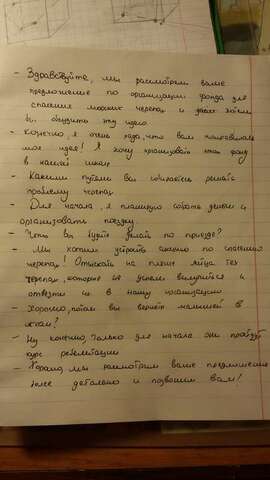 - Здравствуйте, мы рассмотрели ваше
предложение по организации фонда для
спасения морских черепах и даже хотим
бы обсудить эту идею
- Конечно, я очень рада, что вам понравилась
моя идея! Я хочу организовать этот фонд
в нашей школе
- Какими путями вы собираетесь решать
проблему черепах
- Для начала, я планирую собрать деньги и
организовать поездку.
- Что вы будете делать по приезде?
- Мы хотим устроить акцию по спасению
черепах! Отыскать на пляже яйца тех
черепах, которые не успели вылупиться и
отвезти их в нашу организацию
- Хорошо, потом вы вернёте малышей в
океан?
- Ну конечно, только для начала они пройдут
курс ребелитации
- Хорошо, мы рассмотрим ваше предложение
более детально и позвоним вам!